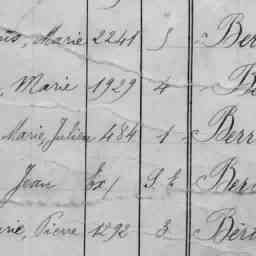 Marie 2241 Ber
, Marie 1929 4 B
Marie, Julien 484 1 Berr
Jean Ex/ S. E Ber
, Pierre 1292 3 Bér